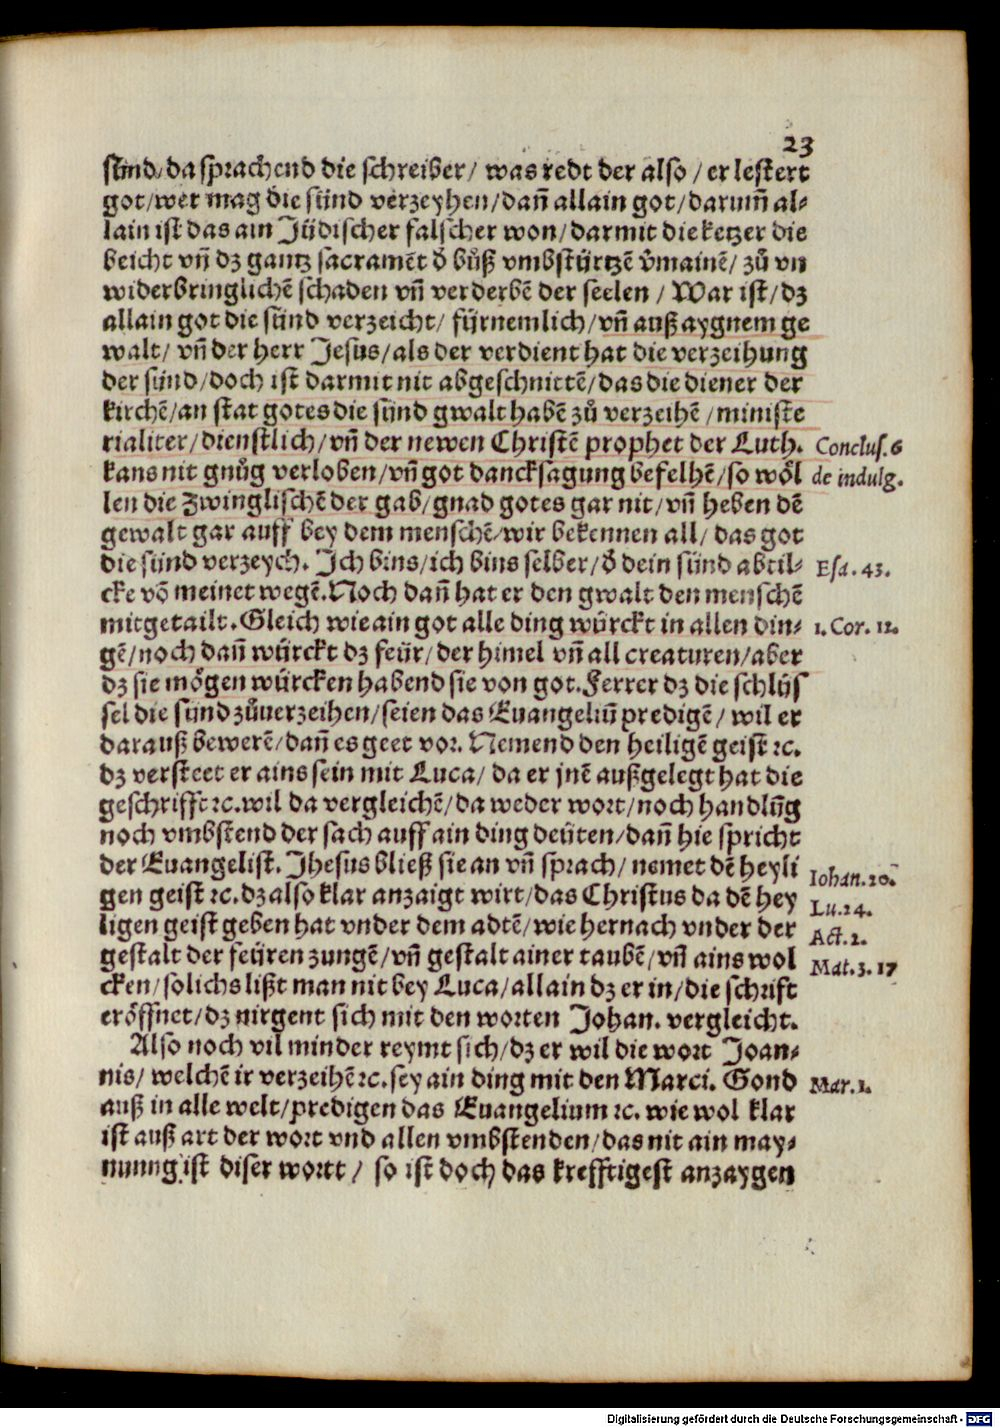 23
sünd/ da sprachend die schreiber/ was redt der also/ er lestert
got/wer mag die sünd verzeyhen/dañ allain got/darumñ al-
lain ist das ain Jüdischer falscher won/darmit die ketzer die
beicht vñ dz gantz sacramēt d̕ bůß vmbstürtzē v̄mainē/ zů vn
widerbringlichē schaden vñ verderbē der seelen / War ist/dz
allain got die sünd verzeicht/ fürnemlich/vñ auß aygnem ge
walt/ vñ der herr Jesus/als der verdient hat die verzeihung
der sünd/doch ist darmit nit abgeschnittē/das die diener der
kirchē/an stat gotes die sünd gwalt habē zů verzeihē/ministe
rialiter/dienstlich/vñ der newen Christē prophet der Luth. Conclus. 6
kans nit gnůg verloben/vñ got dancksagung befelhē/so wöl de indulg.
len die Zwinglischē der gab/gnad gotes gar nit/vñ heben dē
gewalt gar auff bey dem menschē/wir bekennen all/ das got
die sünd verzeych. Ich bins/ich bins selber/d̕ dein sünd abtil- Esa. 43.
cke vō meinet wegē. Noch dañ hat er den gwalt den menschē
mitgetailt. Gleich wie ain got alle ding würckt in allen din- 1. Cor. 12.
gē/noch dañ würckt dz feür/der himel vñ all creaturen/aber
dz sie mögen würcken habend sie von got. Ferrer dz die schlüs
sel die sünd zůuerzeihen/seien das Euangeliū predigē/ wil er
darauß bewerē/dañ es geet vor. Nemend den heiligē geist ꝛc.
dz versteet er ains sein mit Luca/ da er jnē außgelegt hat die
geschrifft ꝛc. wil da vergleichē/da weder wort/noch handlūg
noch vmbstend der sach auff ain ding deüten/dañ hie spricht
der Euangelist. Jhesus bließ sie an vñ sprach/ nemet dē heyli
gen geist ꝛc. dz also klar anzaigt wirt/das Christus da dē hey Iohan. 20.
ligen geist geben hat vnder dem adtē/wie hernach vnder der Lu. 24.
Act. 2.
gestalt der feüren zungē/vñ gestalt ainer taubē/vñ ains wol Mat. 3. 17
cken/solichs lißt man nit bey Luca/allain dz er in/die schrift
eröffnet/dz nirgent sich mit den worten Johan. vergleicht.
Also noch vil minder reymt sich/dz er wil die wort Joan-
nis/ welchē ir verzeihē ꝛc. sey ain ding mit den Marci. Gond Mar. 1.
auß in alle welt/predigen das Euangelium ꝛc. wie wol klar
ist auß art der wort vnd allen vmbstenden/das nit ain may-
nung ist diser wort / so ist doch das krefftigest anzaygen
Digitalisierung gefördert durch die Deutsche Forschungsgemeinschaft - DFG